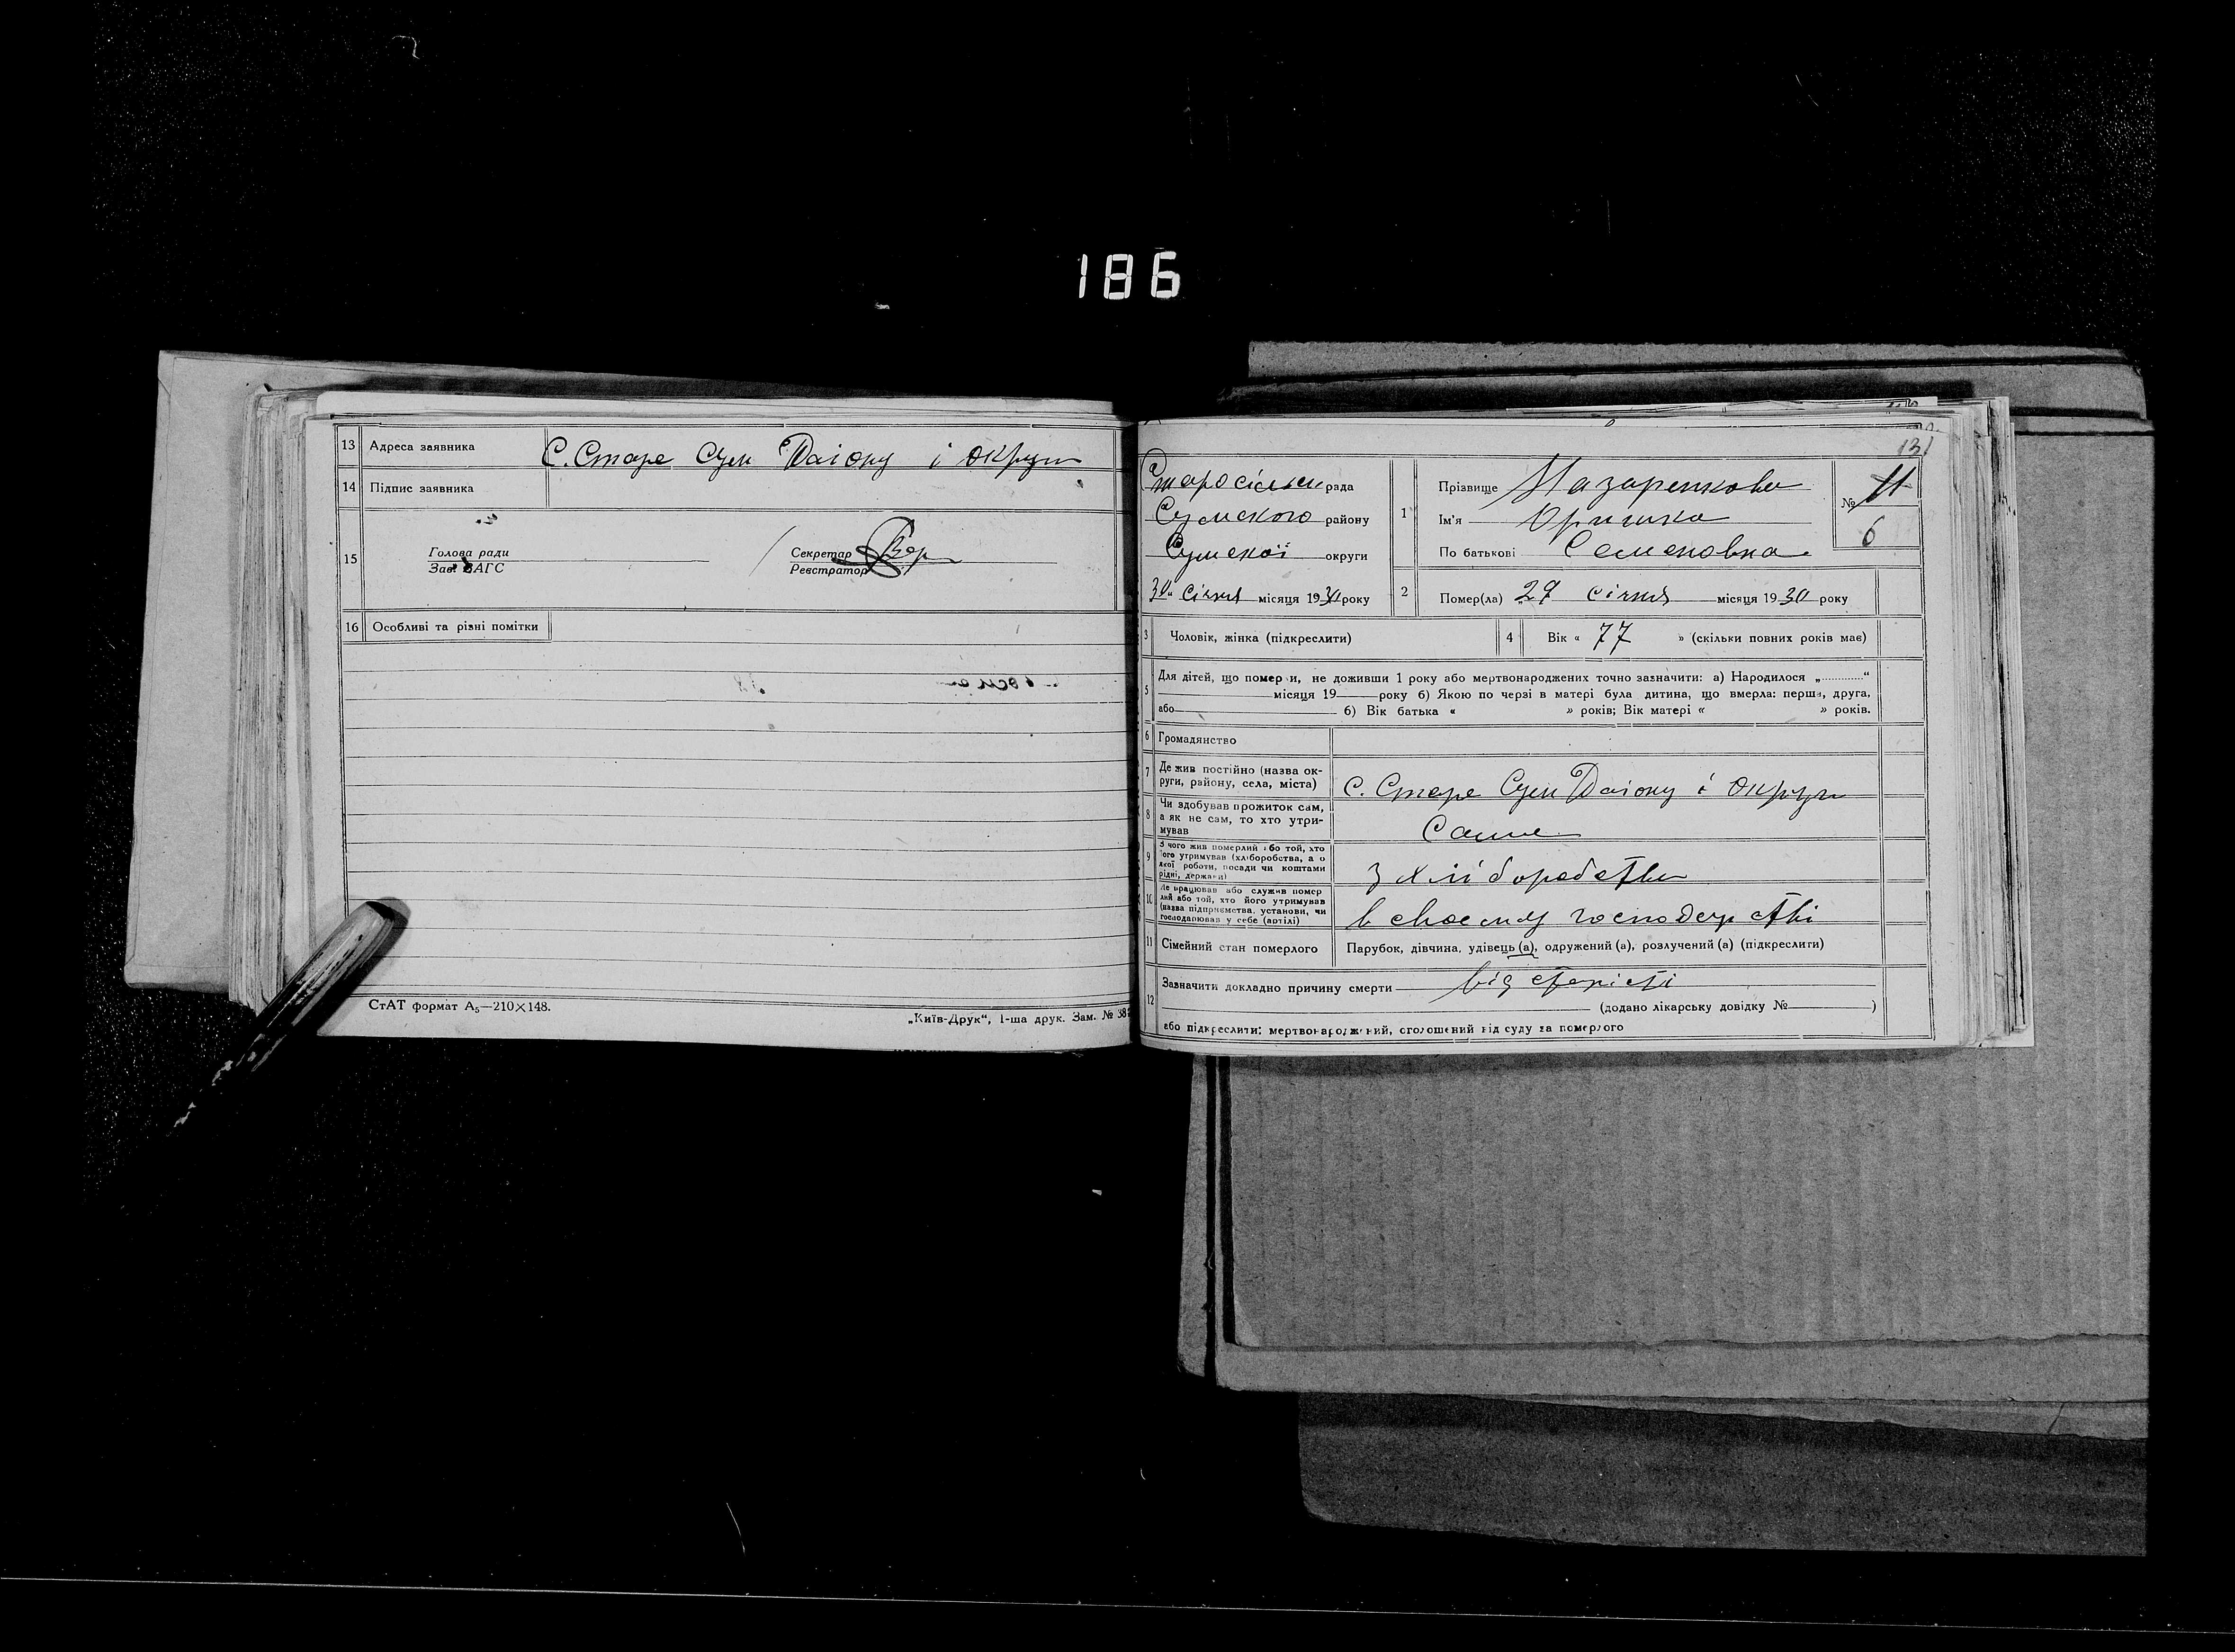 186
13 Адреса заявника С. Старе Сум Району і округи
14 Підпис заявника
15 Голова ради
Зав. ЗАГС
Секретар
Реєстратор
16 Особливі та різні помітки
СтАТ формат А₅—210×148.
„Київ-Друк“, 1-ша друк. Зам. №
131
Старосільськ рада
Сумського району
Сумської округи
30 Січня місяця 1930 року
1 Прізвище Назаренкова
Ім'я Оришка
По батькові Семеновна
№ 11
6
2 Помер(ла) „29 Січня місяця 1930 року
3 Чоловік, жінка (підкреслити)
4 Вік « 77 » (скільки повних років має)
5 Для дітей, що померли, не доживши 1 року або мертвонароджених точно зазначити: а) Народилося „............“
місяця 19 року б) Якою по черзі в матері була дитина, що вмерла: перша, друга,
або 6) Вік батька « » років; Вік матері « » років.
6 Громадянство
7 Де жив постійно (назва ок-
руги, району, села, міста) С. Старе Сум Району і Округи
8 Чи здобував прожиток сам,
а як не сам, то хто утри-
мував Сама
9 З чого жив померлий або той, хто
його утримував (хліборобства, а о
якої роботи, посади чи коштами
рідні, держави) З хліборобства
10 Де працював або служив помер
лий або той, хто його утримував
(назва підприємства, установи, чи
господарював у себе (артілі) В своєму господарстві
11 Сімейний стан померлого Парубок, дівчина, удівець (а), одружений (а), розлучений (а) (підкреслити)
12 Зазначити докладно причину смерти Від старісті
(додано лікарську довідку № )
або підкреслити: мертвонароджений, оголошений від суду за померлого